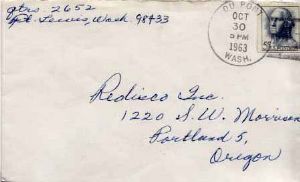 Qtrs 2652
Ft. Lewis, Wash. 98433
DU PONT
OCT
30
5 PM
1963
WASH.
5¢
Redisco Inc.
1220 S.W. Morrison
Portland 5,
Oregon